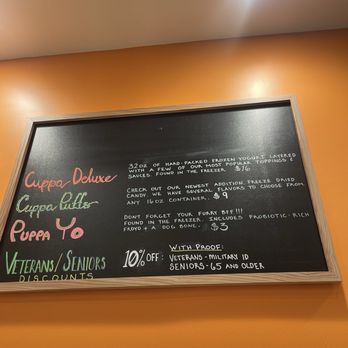 Cuppa Deluxe
32oz of hard packed frozen yogurt layered
with a few of our most popular toppings &
sauces. Found in the freezer. $16
Cuppa Puffs
Check out our newest addition, freeze dried
candy. We have several flavors to choose from
any 16oz container. $9
Puppa Yo
Dont forget your furry BFF!!!
Found in the freezer. Includes probiotic-rich
froyo + a dog bone. $3
Veterans/Seniors
Discounts
10% off:
With Proof:
Veterans - Military ID
Seniors - 65 and older